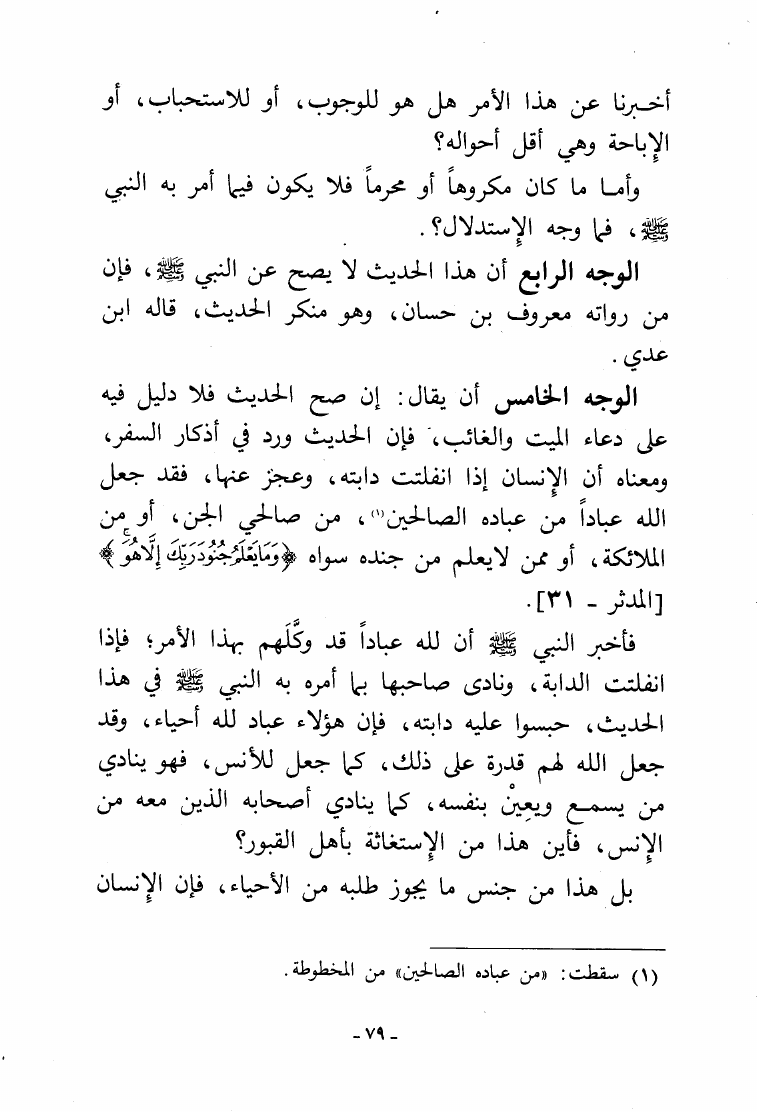 أخـبرنا عن هذا الأمر هل هو للوجوب، أو للاستحباب، أو
الإباحة وهي أقل أحواله؟
وأمـا ما كان مكروهاً أو محرماً فلا يكون فيما أمر به النبي
ﷺ، فما وجه الإستدلال؟.
الوجه الرابع أن هذا الحديث لا يصح عن النبي ﷺ، فإن
من رواته معروف بن حسان، وهو منكر الحديث، قاله ابن
عدي.
الوجه الخامس أن يقال: إن صح الحديث فلا دليل فيه
على دعاء الميت والغائب، فإن الحديث ورد في أذكار السفر،
ومعناه أن الإنسان إذا انفلتت دابته، وعجز عنها، فقد جعل
الله عباداً من عباده الصالحين(١)، من صالحي الجن، أو من
الملائكة، أو ممن لايعلم من جنده سواه ﴿وَمَا يَعْلَمُ جُنُودَ رَبِّكَ إِلَّا هُوَ﴾
[المدثر - ٣١].
فأخبر النبي ﷺ أن لله عباداً قد وكَّلَهم بهذا الأمر؛ فإذا
انفلتت الدابة، ونادى صاحبها بما أمره به النبي ﷺ في هذا
الحديث، حبسوا عليه دابته، فإن هؤلاء عباد لله أحياء، وقد
جعل الله لهم قدرة على ذلك، كما جعل للأنس، فهو ينادي
من يسمـع ويعينْ بنفسه، كما ينادي أصحابه الذين معه من
الإنس، فأين هذا من الإستغاثة بأهل القبور؟
بل هذا من جنس ما يجوز طلبه من الأحياء، فإن الإنسان
(١) سقطت: «من عباده الصالحين» من المخطوطة.
- ٧٩ -